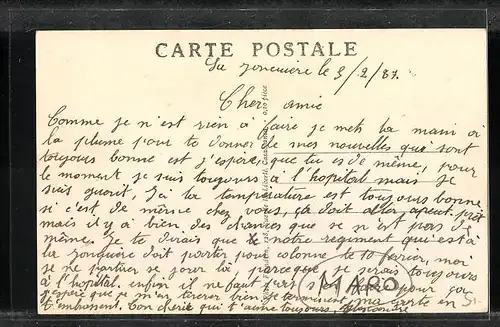 CARTE POSTALE
La Jonquière le 3/2/37.
Cher amie
Comme je n'est rien a faire je mets la main a
la plume pour te donner de mes nouvelles qui sont
toujours bonne est j'espère que tu es de même, pour
le moment je suis toujours a l'hopital mais je
suis guerit, Ici la température est toujours bonne
si c'est de même chez vous, ça doit aller, apeut prêt
mais il y a bien des chances que se n'est pas de
même. Je te dirais que notre regiment qui est a
la doit partir pour colonne le 10 fevrier, moi
je ne partirer se jorer la, parceque je serais toujours
a l'hopital. enfin il ne faut pas s'en pour ça
j'espère que je m'en tirerer bien je termineut ma carte en
t'embrassent. Ton cherie qui t'aime toujours.
MARO
51-